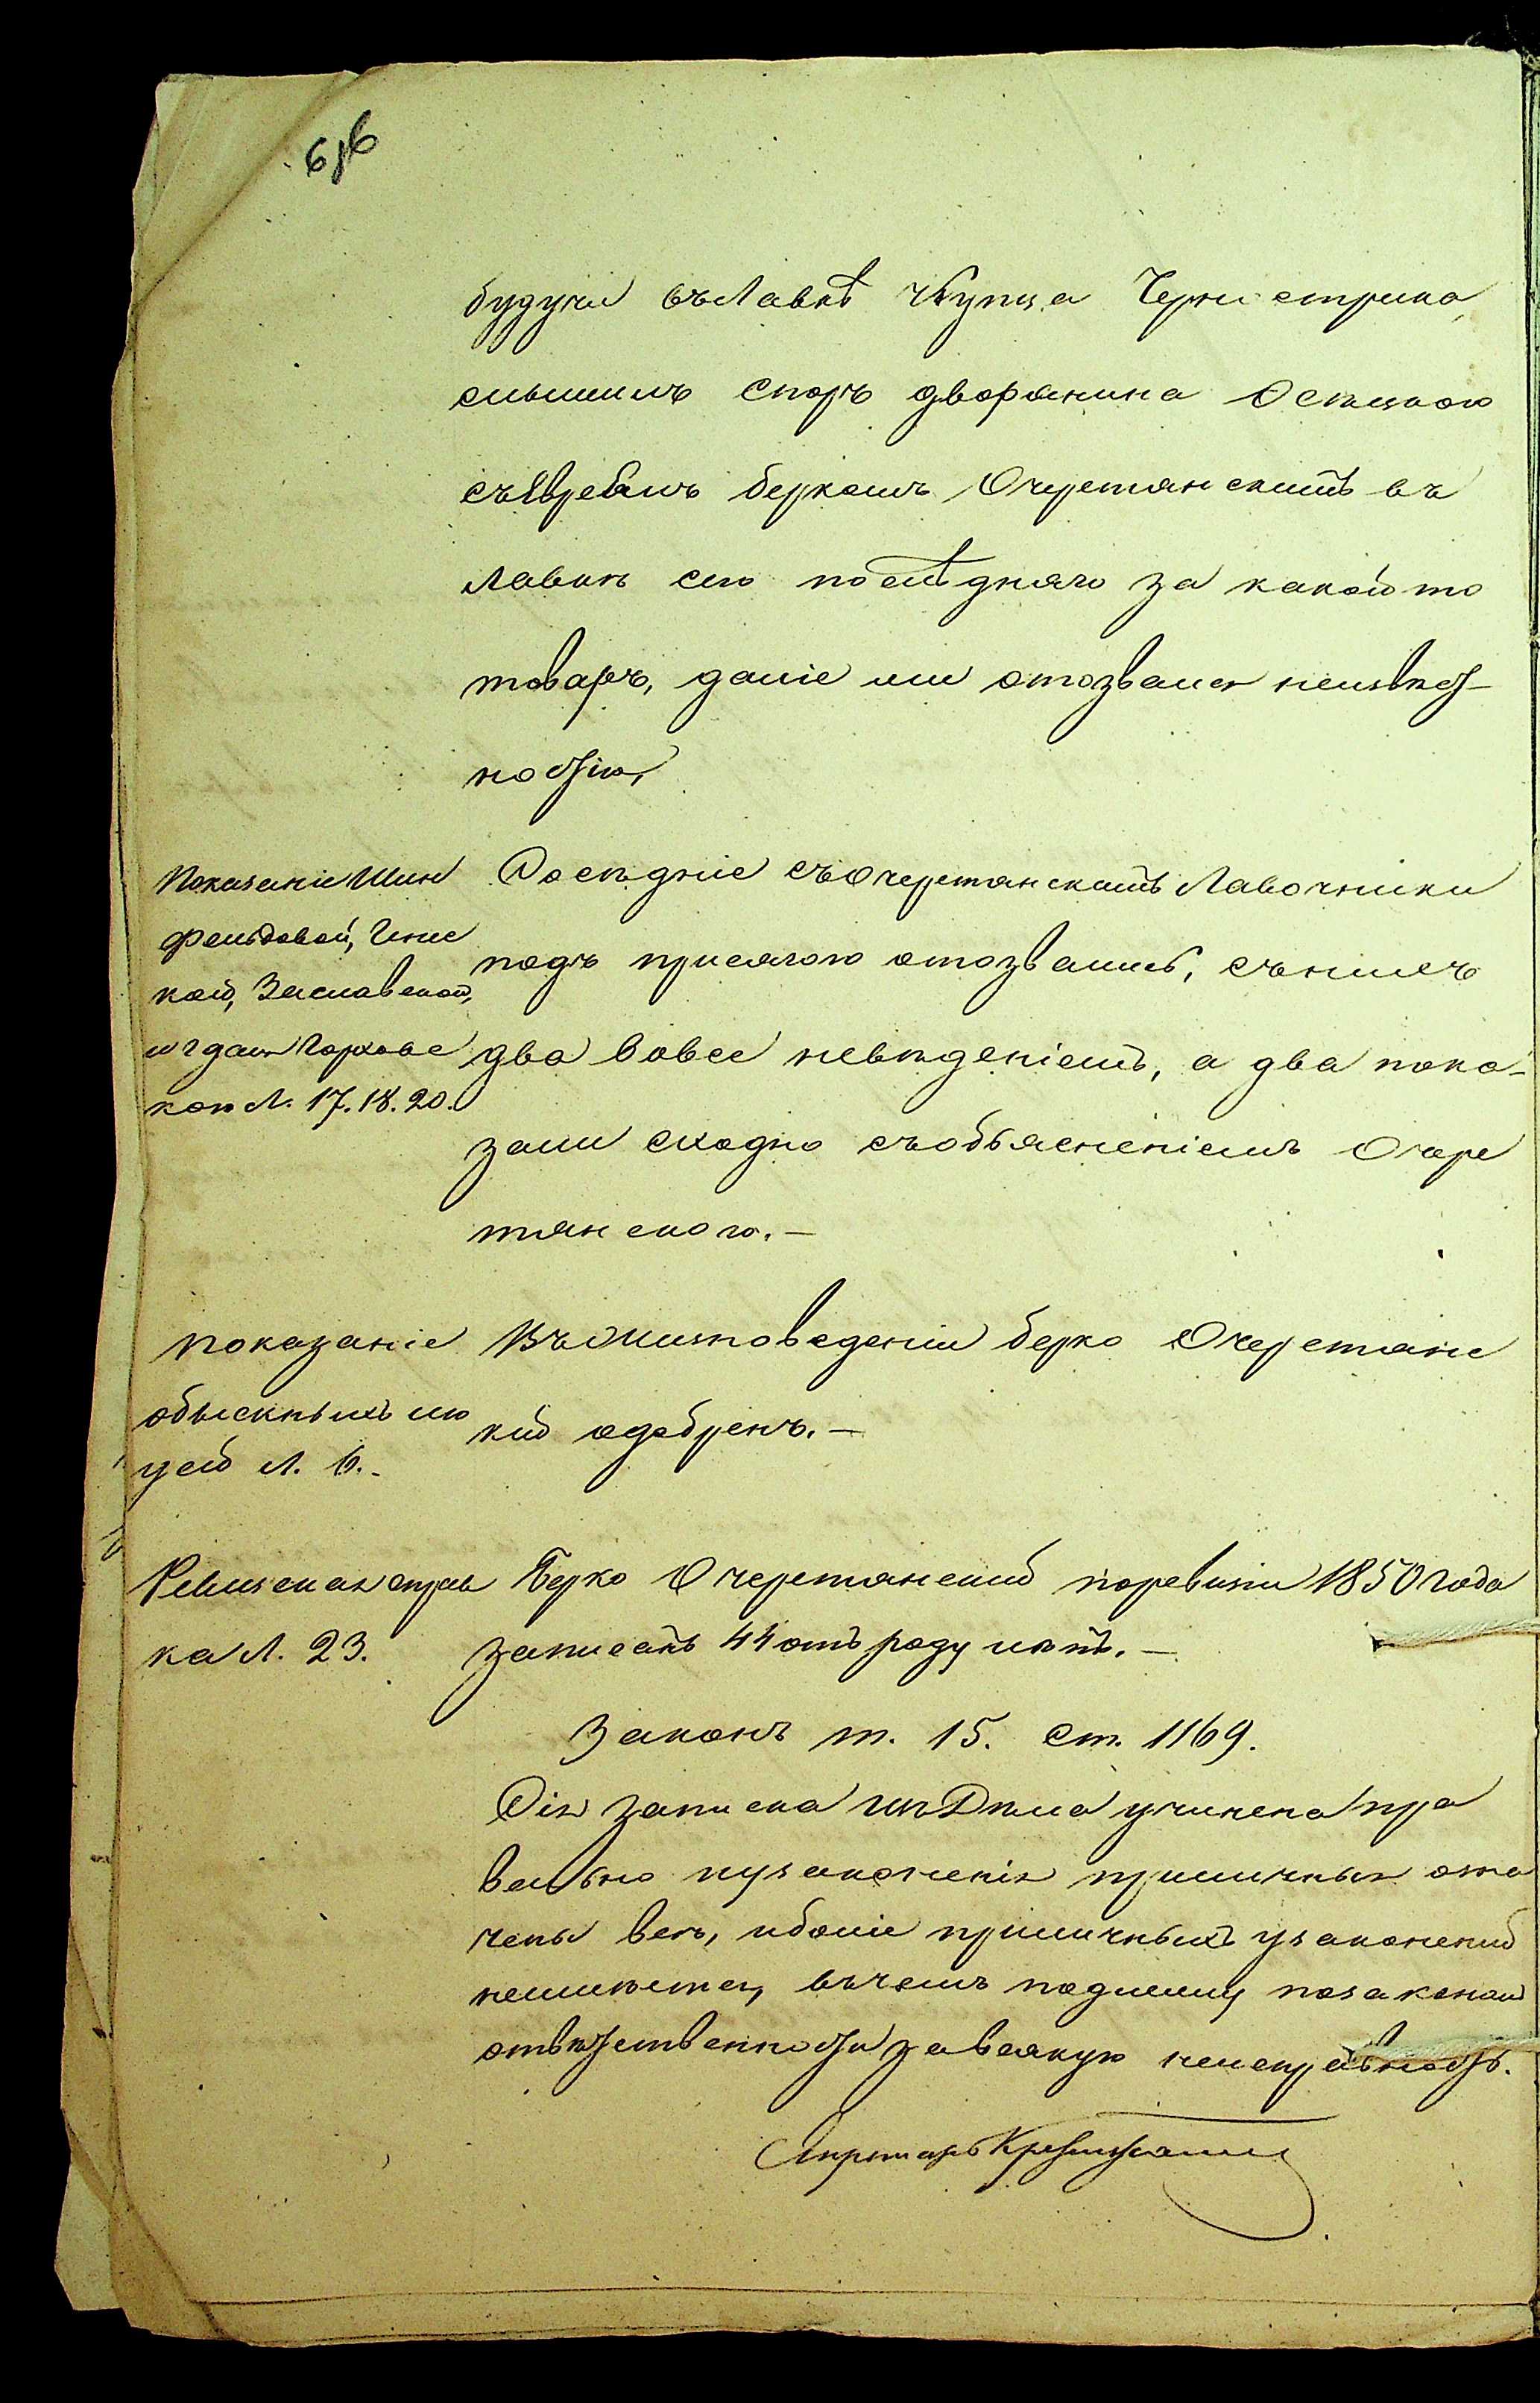 будучи въ Лавкѣ Купца Чернистрика,
слышилъ споръ дворянина
съ Евреемъ Беркомъ Очеретянскимъ въ
Лавкѣ сего послѣдняго за какой то
товаръ, далѣе ли отозвался неизвѣст-
ностію,
Показаніе Шин
фельдовой,
кой, Заславской,
и Горхове
кою Л. 17. 18. 20.
Сосѣдніе съ Очеретянскимъ Лавочники
подъ присягою отозвались, съ нихъ
два вовсе невѣденіемъ, а два пока-
зали сходно съ объясненіемъ Очере
тянского.—
показаніе
обыскныхъ лю
дей Л. 6.-
Въ поведеніи Берко Очеретянс
кій одобренъ.—
Ревизская справ
ка Л. 23.
Берко Очеретянский по ревизіи 1850 года
записанъ 44 отъ роду лѣтъ.—
Законъ т. 15. ст. 1169.
Сія записка изъ Дѣла учинена пра
вельно и узаконенія приличныя озна
чены всѣ, и болѣе приличныхъ узаконений
неимѣется, въ чемъ подлежу по законам
отвѣтственности за всякую неисправность.
Секретарь